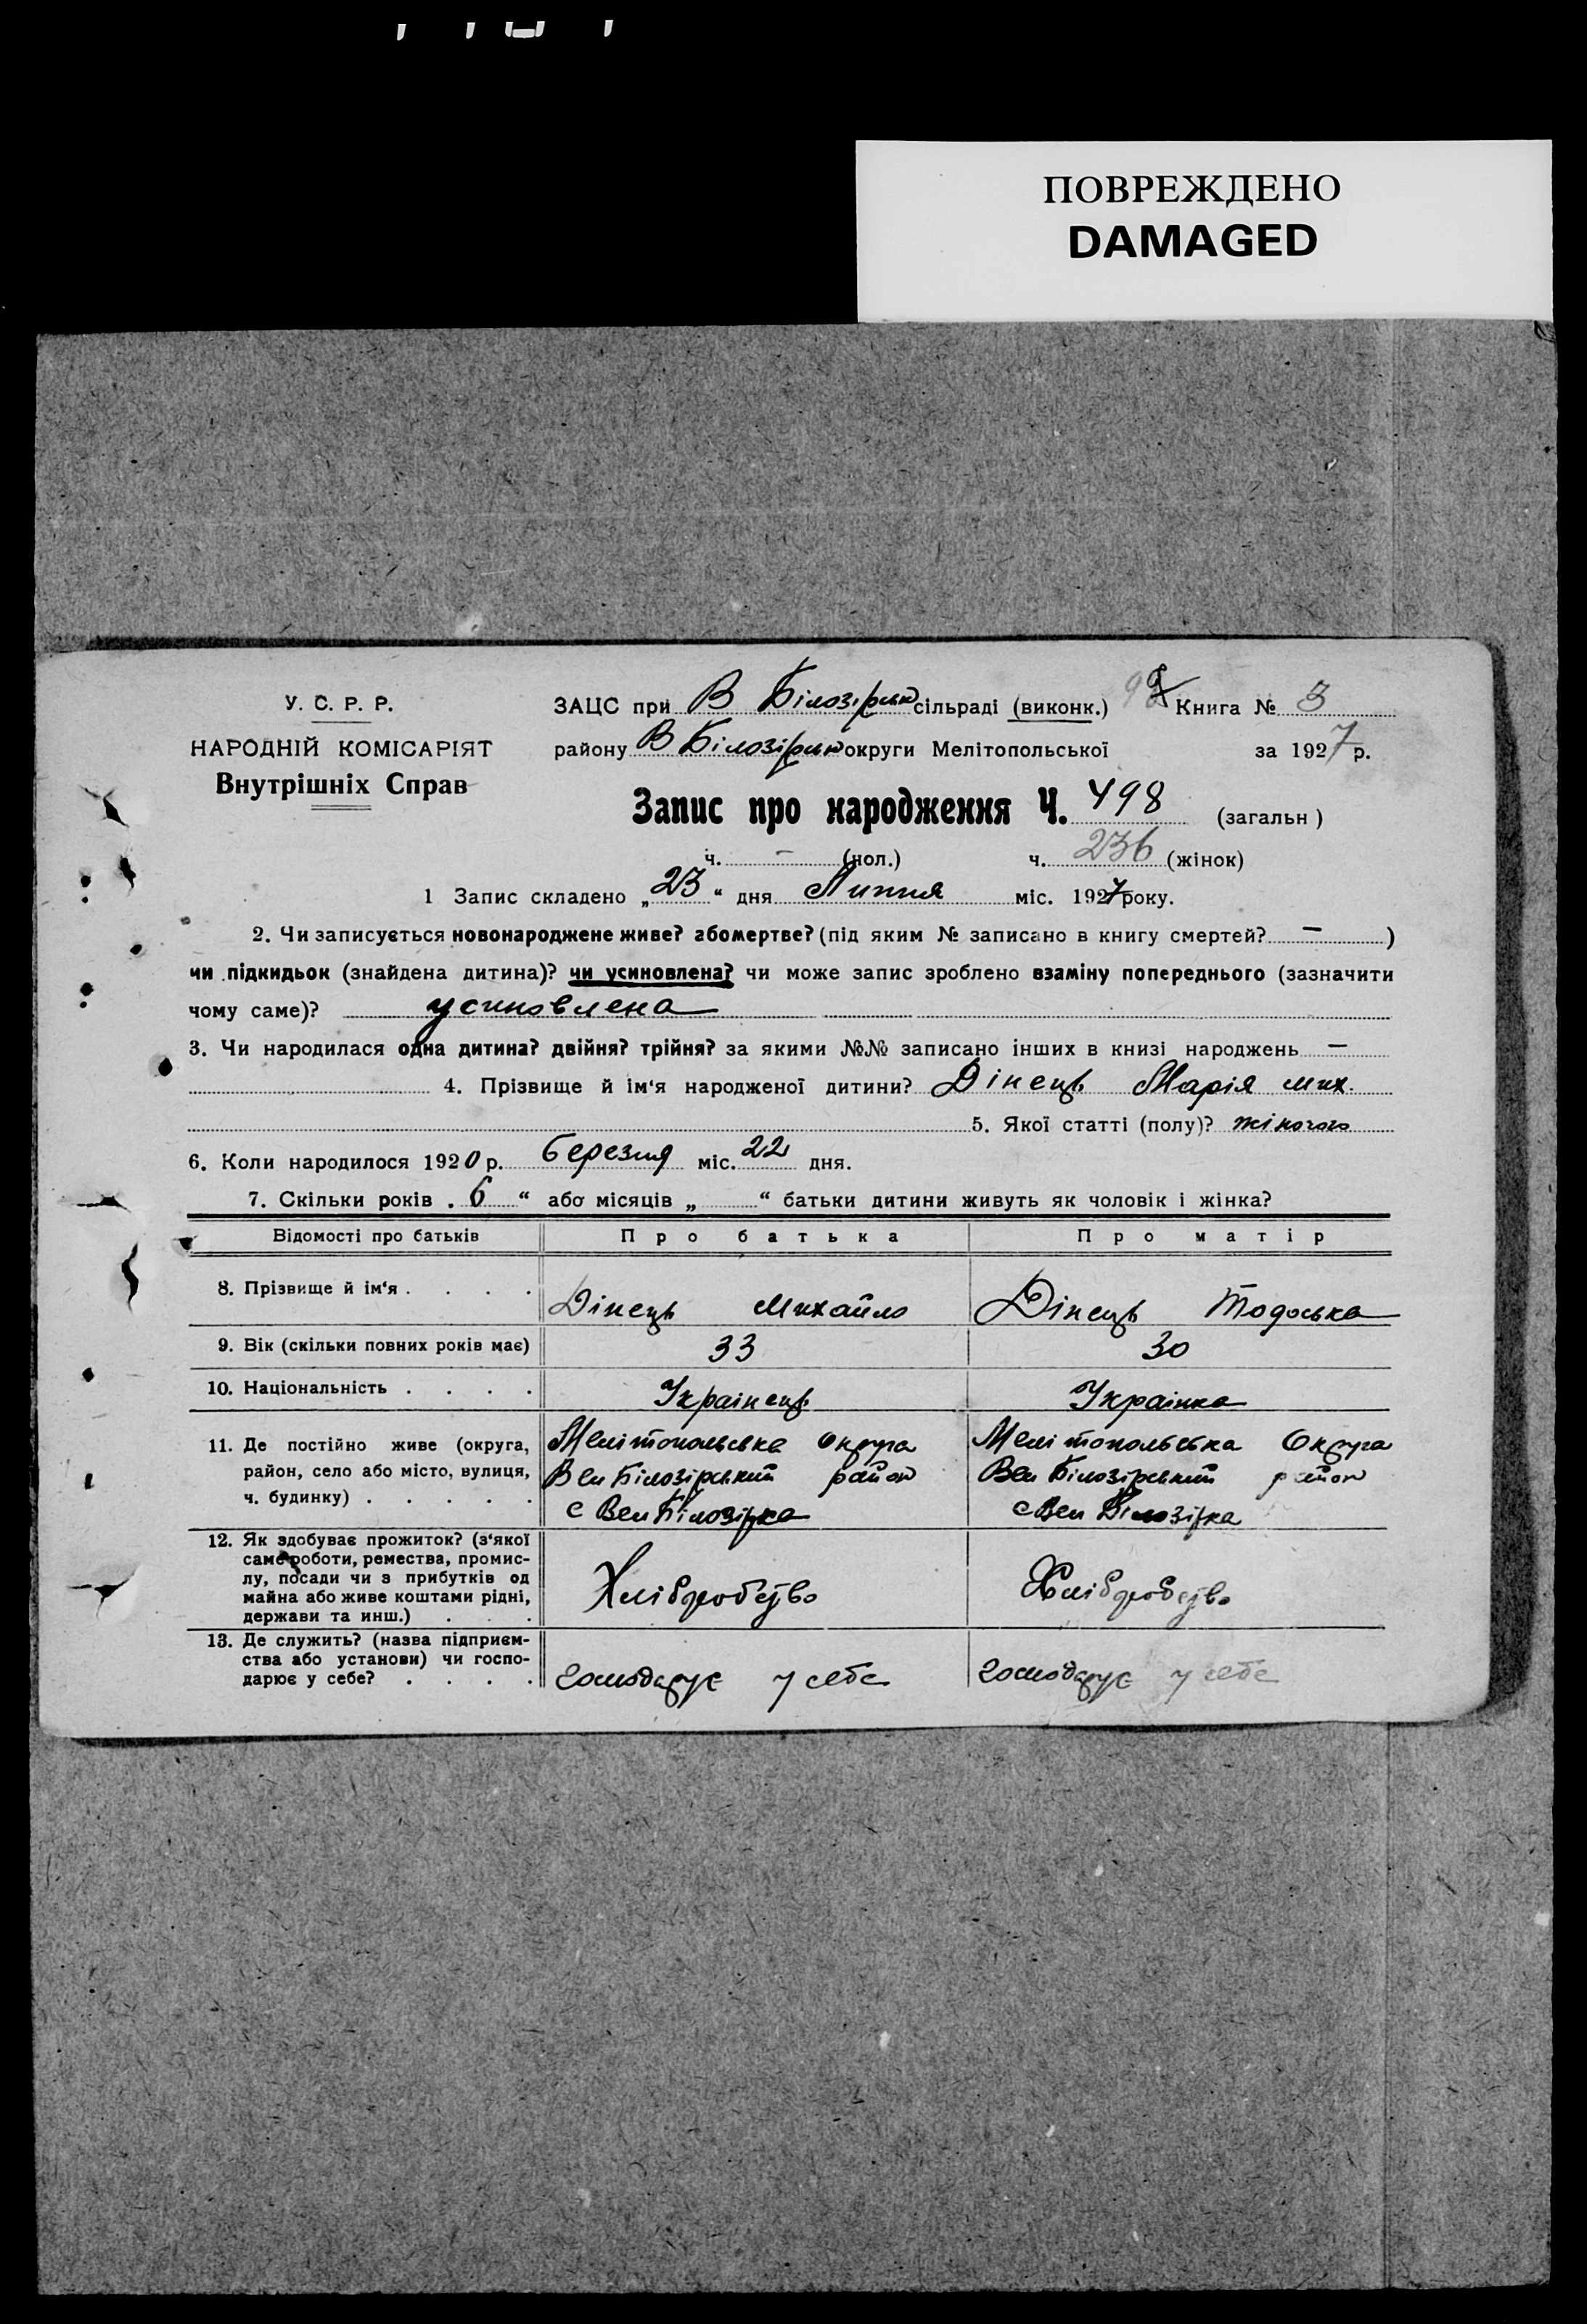 ПОВРЕЖДЕНО
DAMAGED
У. С. Р. Р.
НАРОДНІЙ КОМІСАРІЯТ
Внутрішніх Справ
ЗАЦС при В Білозірськ сільраді (виконк.) Книга № 3
району В Білозірськ округи Мелітопольської за 1927 р.
Запис про народження Ч. 498 (загальн)
ч. — (чол.) ч. 236 (жінок)
1 Запис складено „23“ дня Липня міс. 1927 року.
2. Чи записується новонароджене живе? або мертве? (під яким № записано в книгу смертей? — )
чи підкидьок (знайдена дитина)? чи усиновлена? чи може запис зроблено взаміну попереднього (зазначити
чому саме)? усиновлена
3. Чи народилася одна дитина? двійня? трійня? за якими №№ записано інших в книзі народжень —
4. Прізвище й ім‘я народженої дитини? Дінець Марія мих.
5. Якої статті (полу)? жіночого
6. Коли народилося 1920 р. березня міс. 22 дня.
7. Скільки років . 6 “ або місяців „ “ батьки дитини живуть як чоловік і жінка?
Відомості про батьків Про батька Про матір
8. Прізвище й ім‘я . . . . Дінець Михайло Дінець Тодоська
9. Вік (скільки повних років має) 33 30
10. Національність . . . . Українець Українка
11. Де постійно живе (округа, Мелітопольська Округа Мелітопольська Округа
район, село або місто, вулиця, Вел Білозірський район Вел Білозірський район
ч. будинку) . . . . . с Вел Білозірка с Вел Білозірка
12. Як здобуває прожиток? (з‘якої
саме роботи, ремества, промис-
лу, посади чи з прибутків од
майна або живе коштами рідні, Хліборобство Хліборобство
держави та инш.) . . .
13. Де служить? (назва підприєм-
ства або установи) чи госпо-
дарює у себе? . . . . господарує у себе господарує у себе